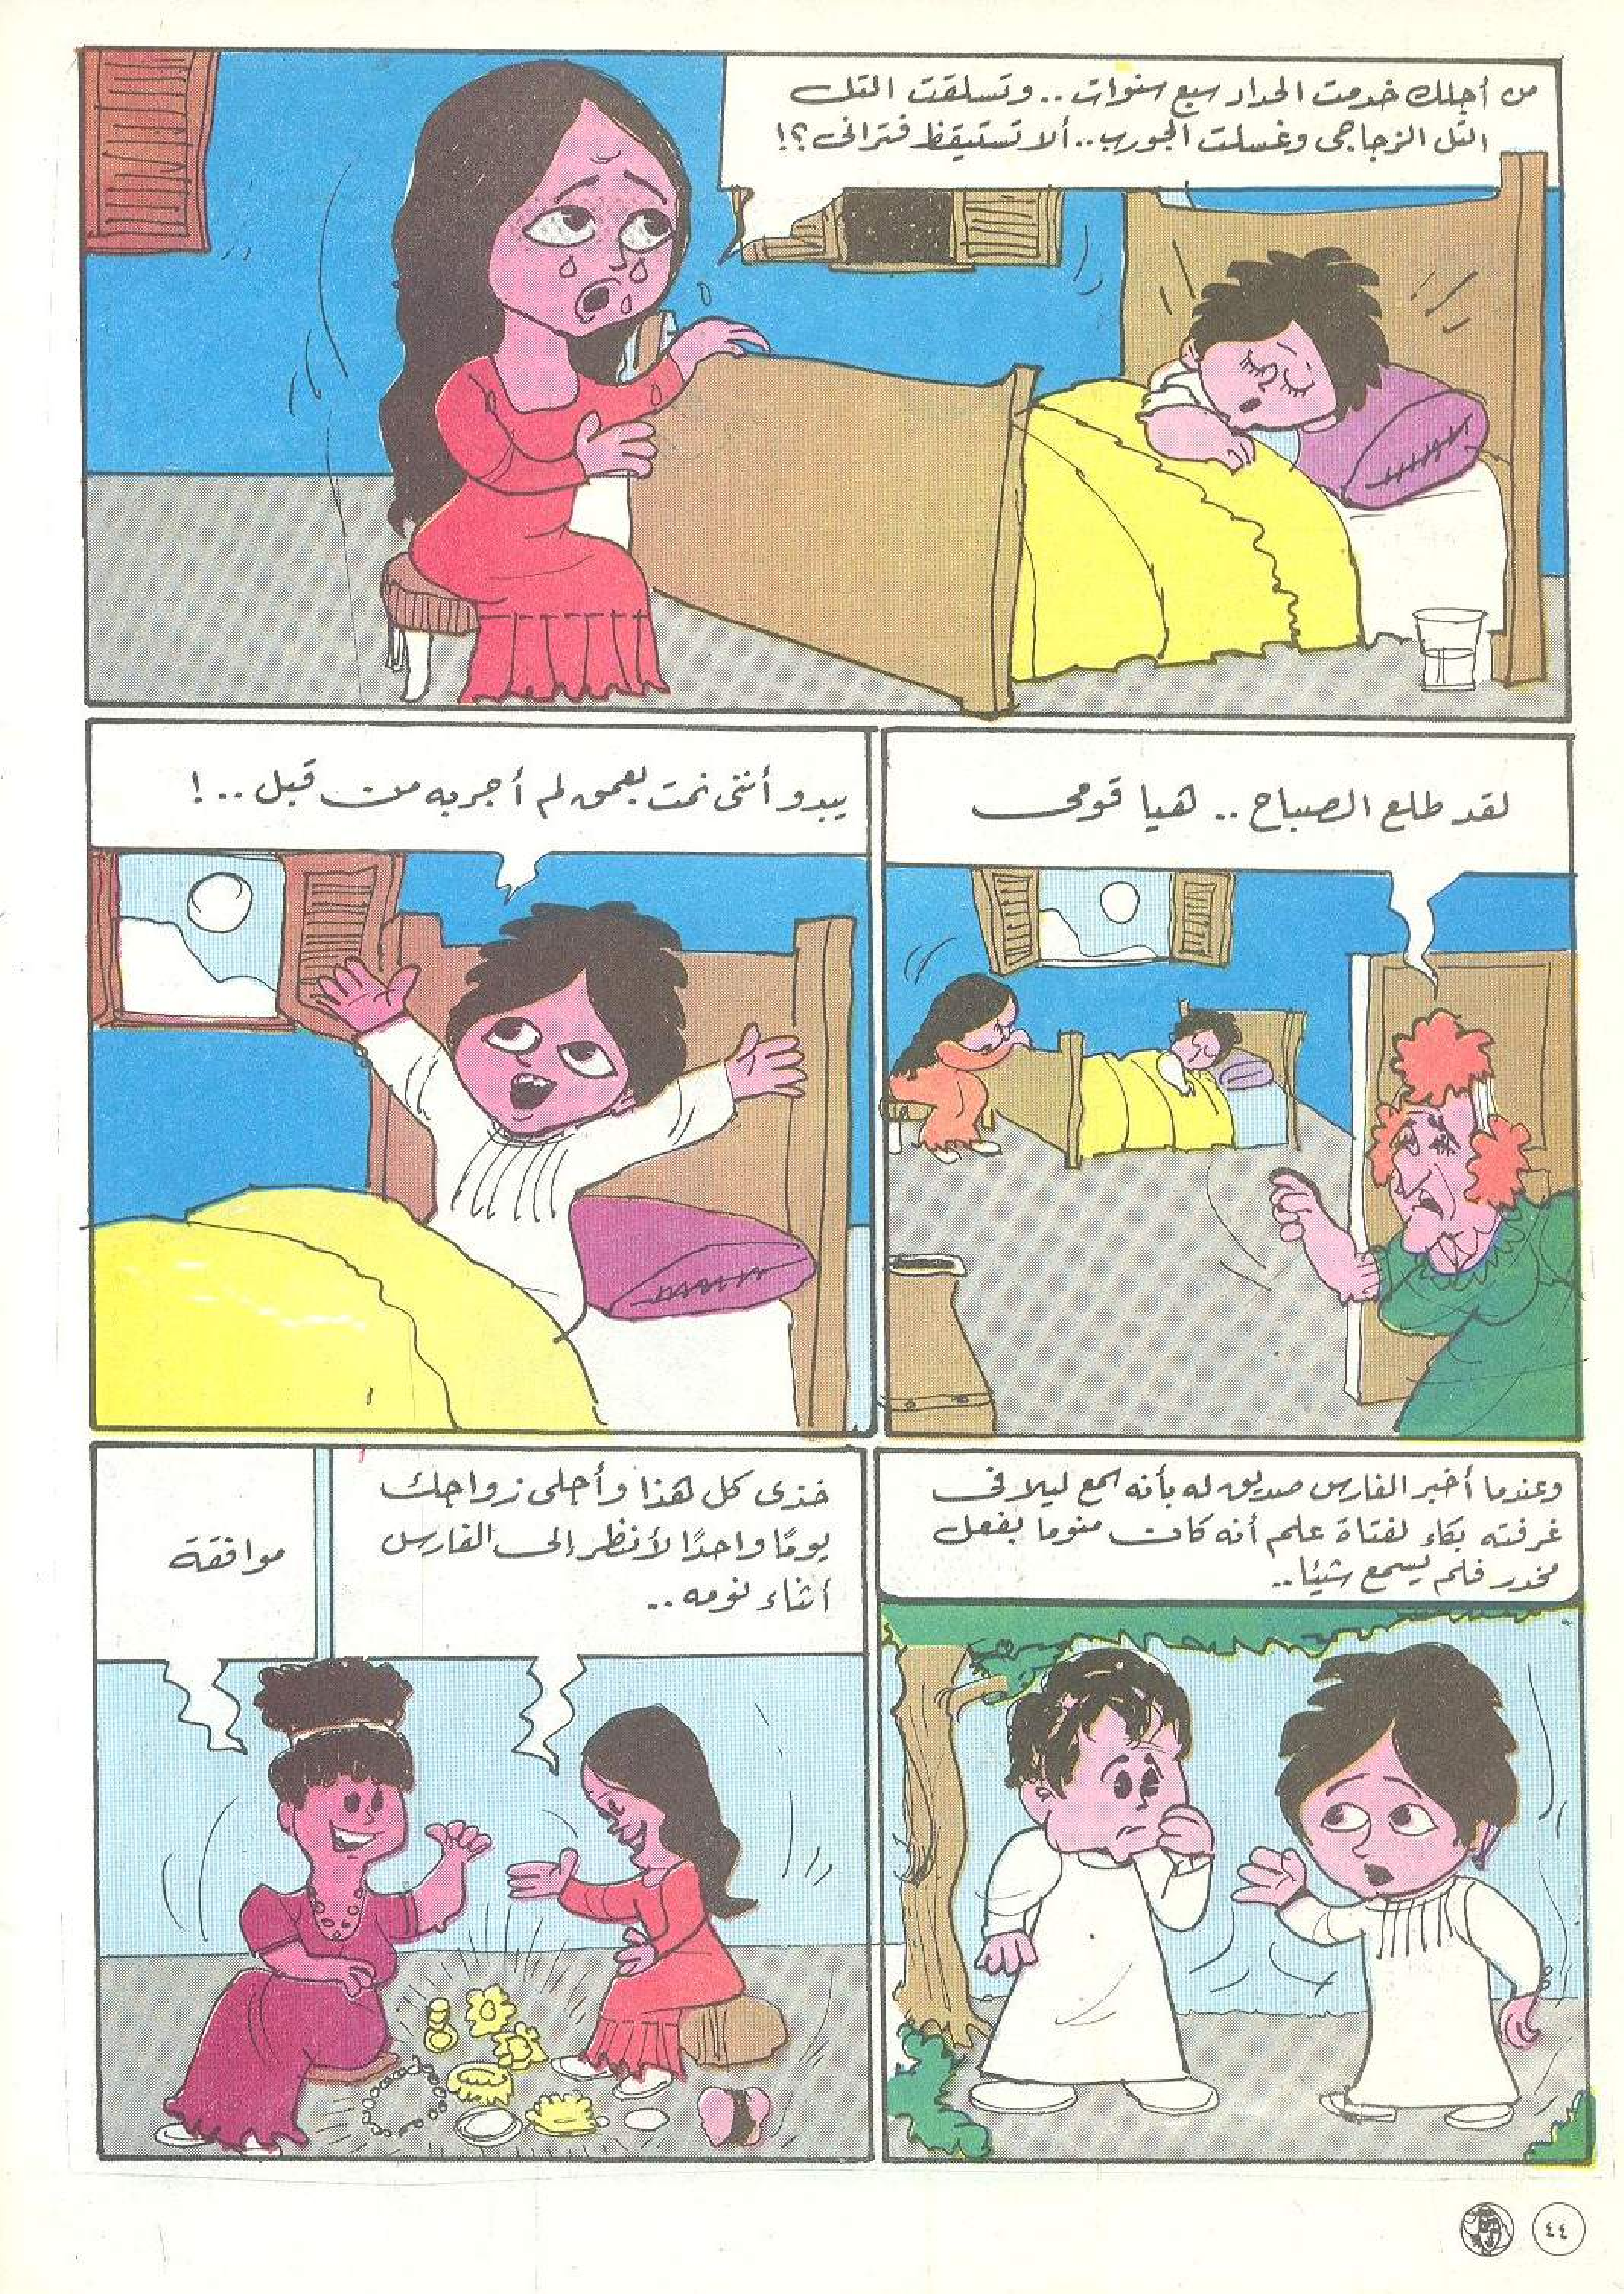 من أجلك خدمت الحداد سبع سنوات .. وتسلقت التل
التل الزجاجى وغسلت الجورب .. ألا تستيقظ فترانى ؟!
لقد طلع الصباح .. هيا قومى
يبدو أننى نمت بعمق لم أجربه من قبل .. !
وعندما أخبر الفارس صديق له بأنه سمع ليلا فى
غرفته بكاء لفتاة علم أنه كان منوما بفعل
مخدر فلم يسمع شيئا ..
خذى كل هذا وأجلى زواجك
يومًا واحدًا لأنظر إلى الفارس
أثناء نومه ..
موافقة
٤٤